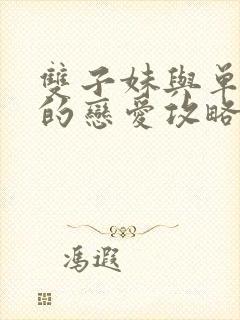 雙子妹與單
的戀愛攻略
馮遐